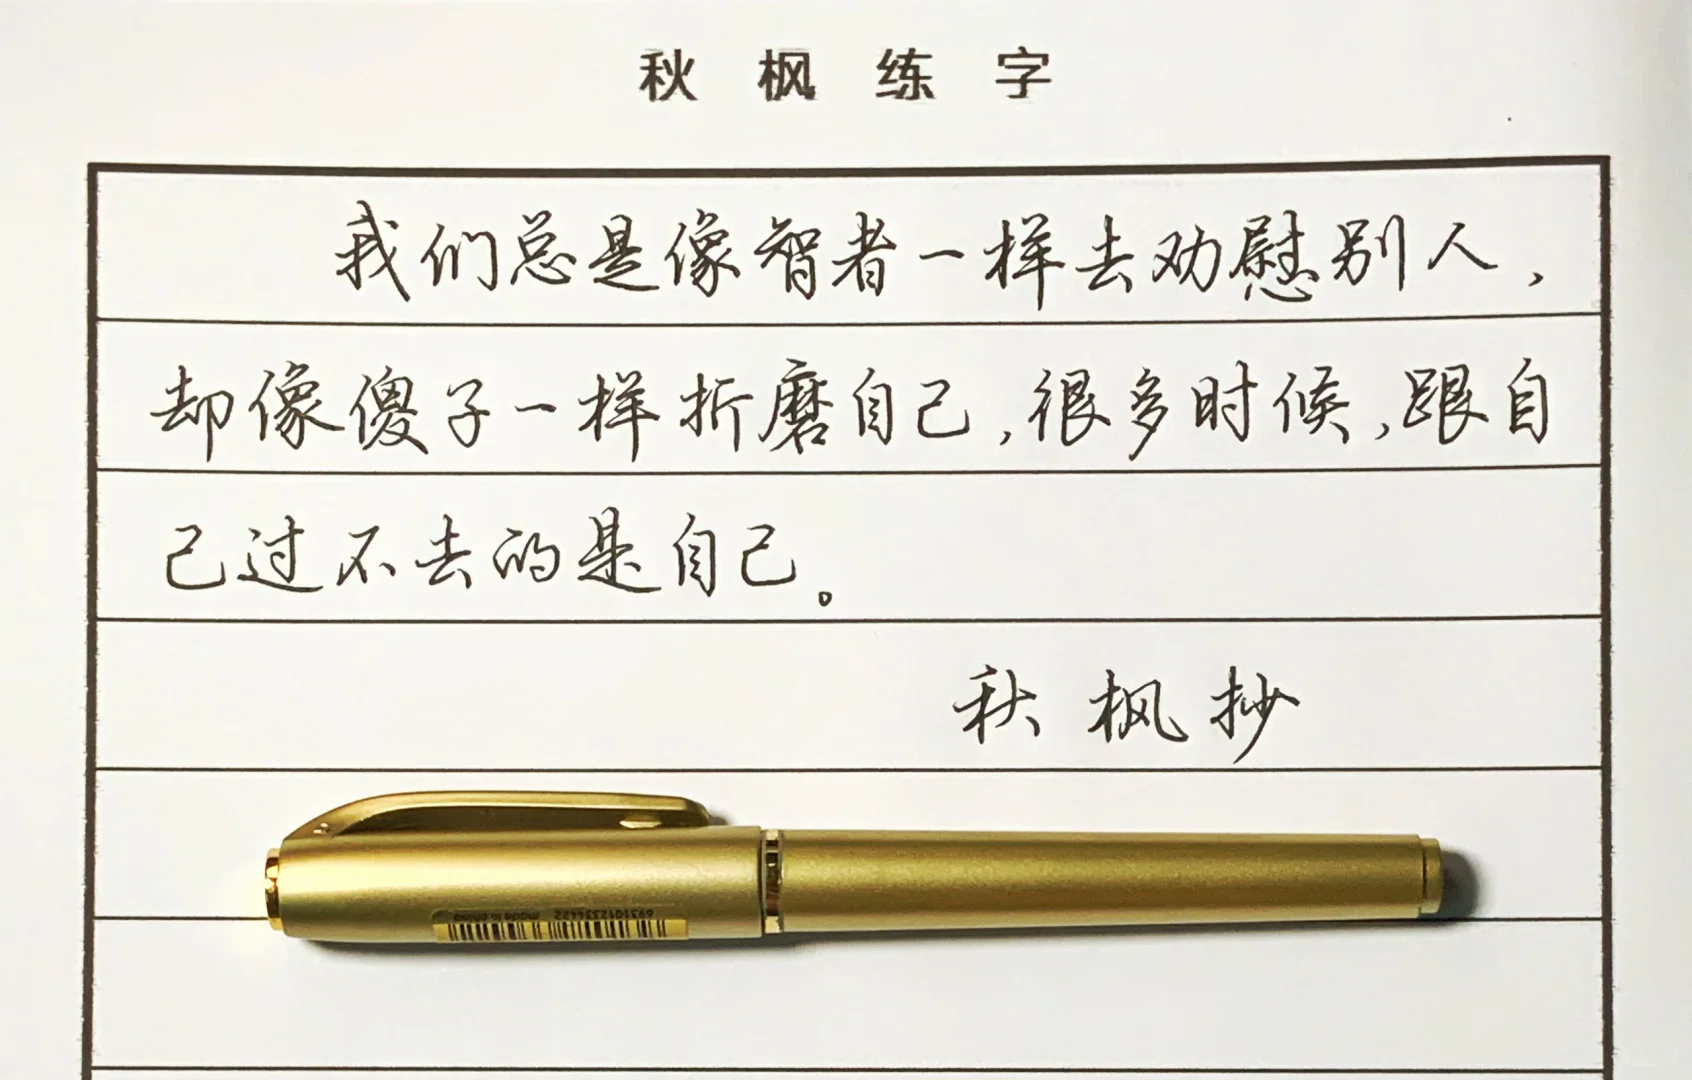 秋枫练字
我们总是像智者一样去劝慰别人，
却像傻子一样折磨自己，很多时候，跟自
己过不去的是自己。
秋枫抄
6931012334422 made in china